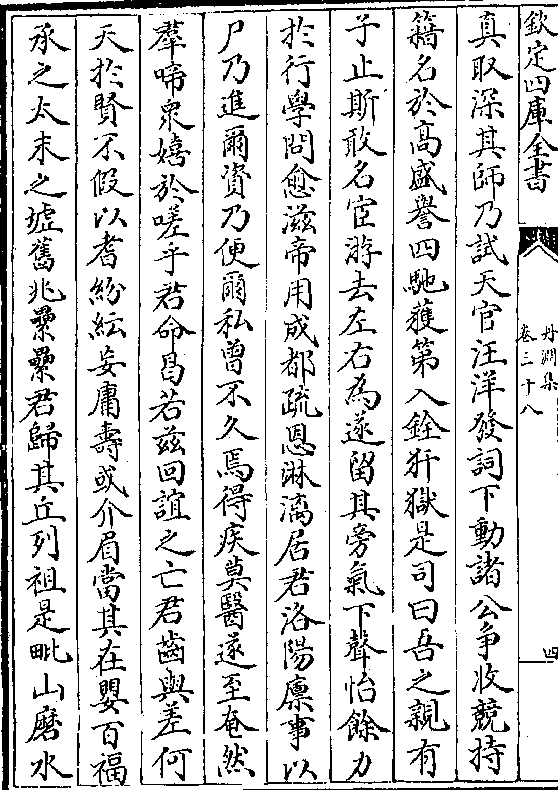 欽定四庫全書
丹淵集
卷三十八
四
真取深其師乃試天官汪洋發詞下動諸公爭收競持
籍名於高盛譽四馳獲第入銓犴獄是司曰吾之親有
子止斯敢名宦游去左右為遂留其旁氣下聲怡餘力
於行學問愈滋帝用成都疏恩淋漓居君洛陽廪事以
尸乃進爾資乃便爾私曾不久焉得疾莫醫遂至奄然
羣啼衆嬉於嗟乎君命曷若兹回誼之亡君齒與差何
天於賢不假以耆紛紜妄庸壽或介眉當其在嬰百福
承之太末之墟舊兆纍纍君歸其丘列祖是毗山磨水